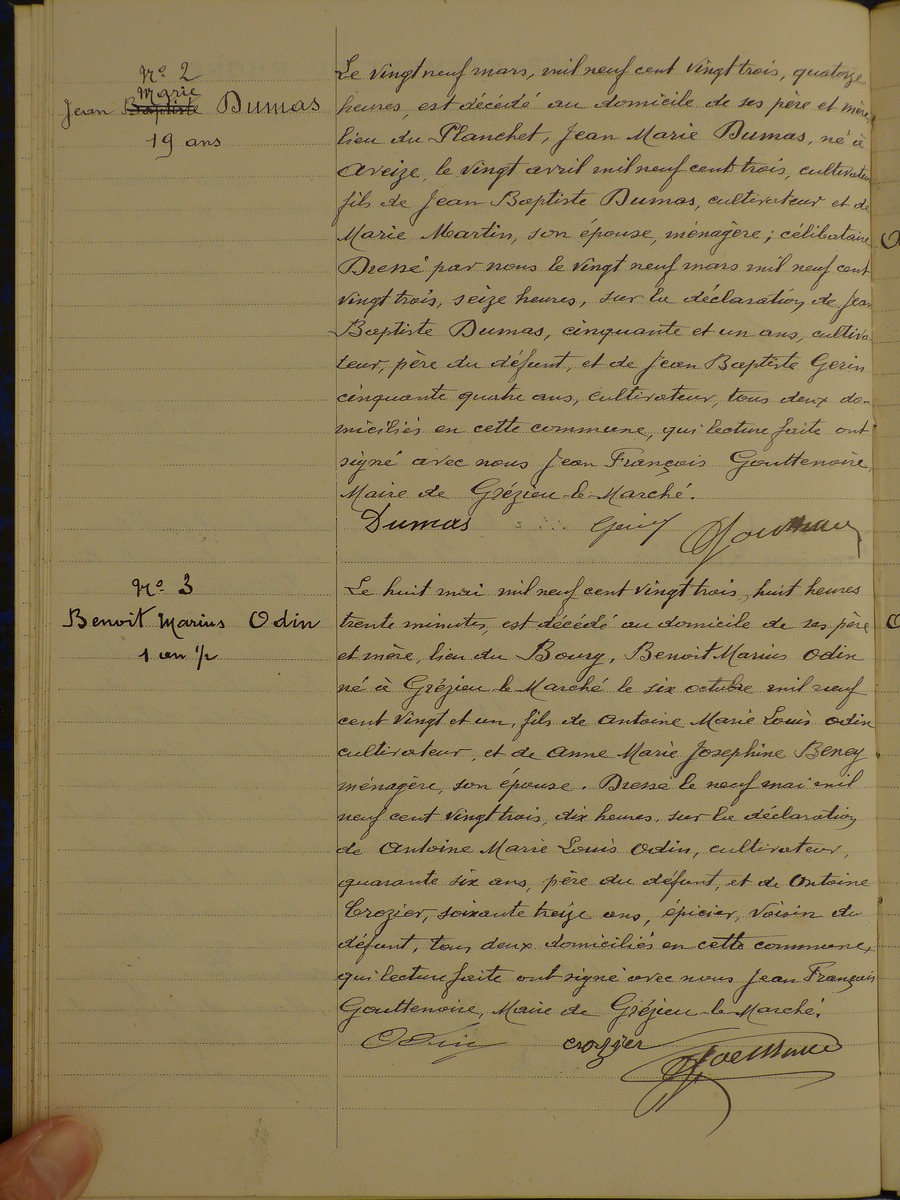 No 2
Marie
Jean Baptiste Dumas
19 ans
Le vingt neuf mars, mil neuf cent vingt trois, quatorze
heures, est décédé au domicile de ses père et mère,
lieu du Planchet, Jean Marie Dumas, né à
Aveize, le vingt avril mil neuf cent trois, cultivateur
fils de Jean Baptiste Dumas, cultivateur et de
Marie Martin, son épouse, ménagère; célibataire
Dressé par nous le vingt neuf mars mil neuf cent
vingt trois, seize heures, sur la déclaration de Jean
Baptiste Dumas, cinquante et un ans, cultiva-
teur, père du défunt, et de Jean Baptiste Gerin
cinquante quatre ans, cultivateur, tous deux do-
miciliés en cette commune, qui lecture faite ont
signé avec nous Jean François Gouttenoire,
Maire de Grézieu-le-Marché.
Dumas Gerin
No 3
Benoit Marius Odin
1 an 1/2
Le huit mai mil neuf cent vingt trois, huit heures
trente minutes, est décédé au domicile de ses père
et mère, lieu du Bourg, Benoit Marius Odin
né à Grézieu le Marché le six octobre mil neuf
cent vingt et un, fils de Antoine Marie Louis Odin
cultivateur, et de Anne Marie Josephine Beney
ménagère, son épouse. Dressé le neuf mai mil
neuf cent vingt trois, dix heures, sur la déclaration
de Antoine Marie Louis Odin, cultivateur,
quarante six ans, père du défunt, et de Antoine
Crozier, soixante treize ans, épicier, voisin du
défunt, tous deux domiciliés en cette commune,
qui lecture faite ont signé avec nous Jean François
Gouttenoire, Maire de Grézieu-le-Marché.
Odin crozier